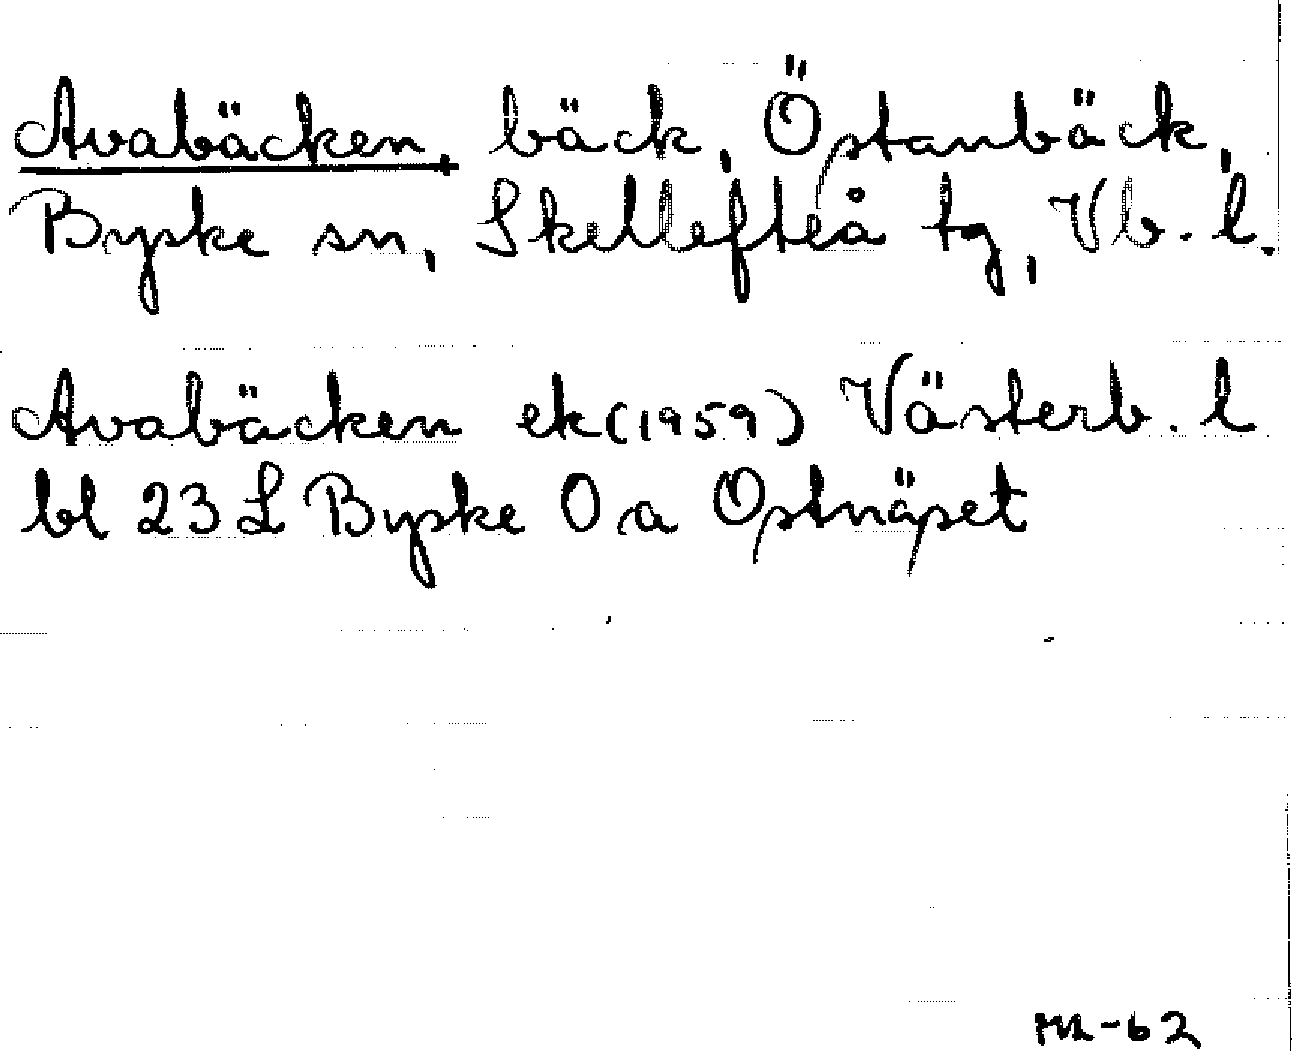 Avabäcken, bäck, Östanbäck,
Byske sn, Skellefteå tg, Vb. l.
Avabäcken ek(1959) Västerb. l
bl 23 L Byske O a Ostnäset
-62